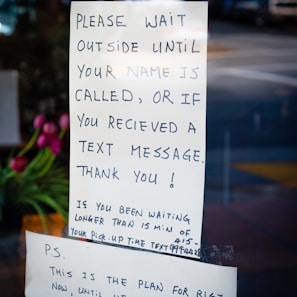 PLEASE WAIT
OUTSIDE UNTIL
YOUR NAME IS
CALLED, OR IF
YOU RECIEVED A
TEXT MESSAGE.
THANK YOU!
IS YOU BEEN WAITING
LONGER THAN 15 MIN OF
YOUR PICK-UP TIME TEXT 415-
P.S.
THIS IS THE PLAN FOR RIGT
NOW, UNTIL